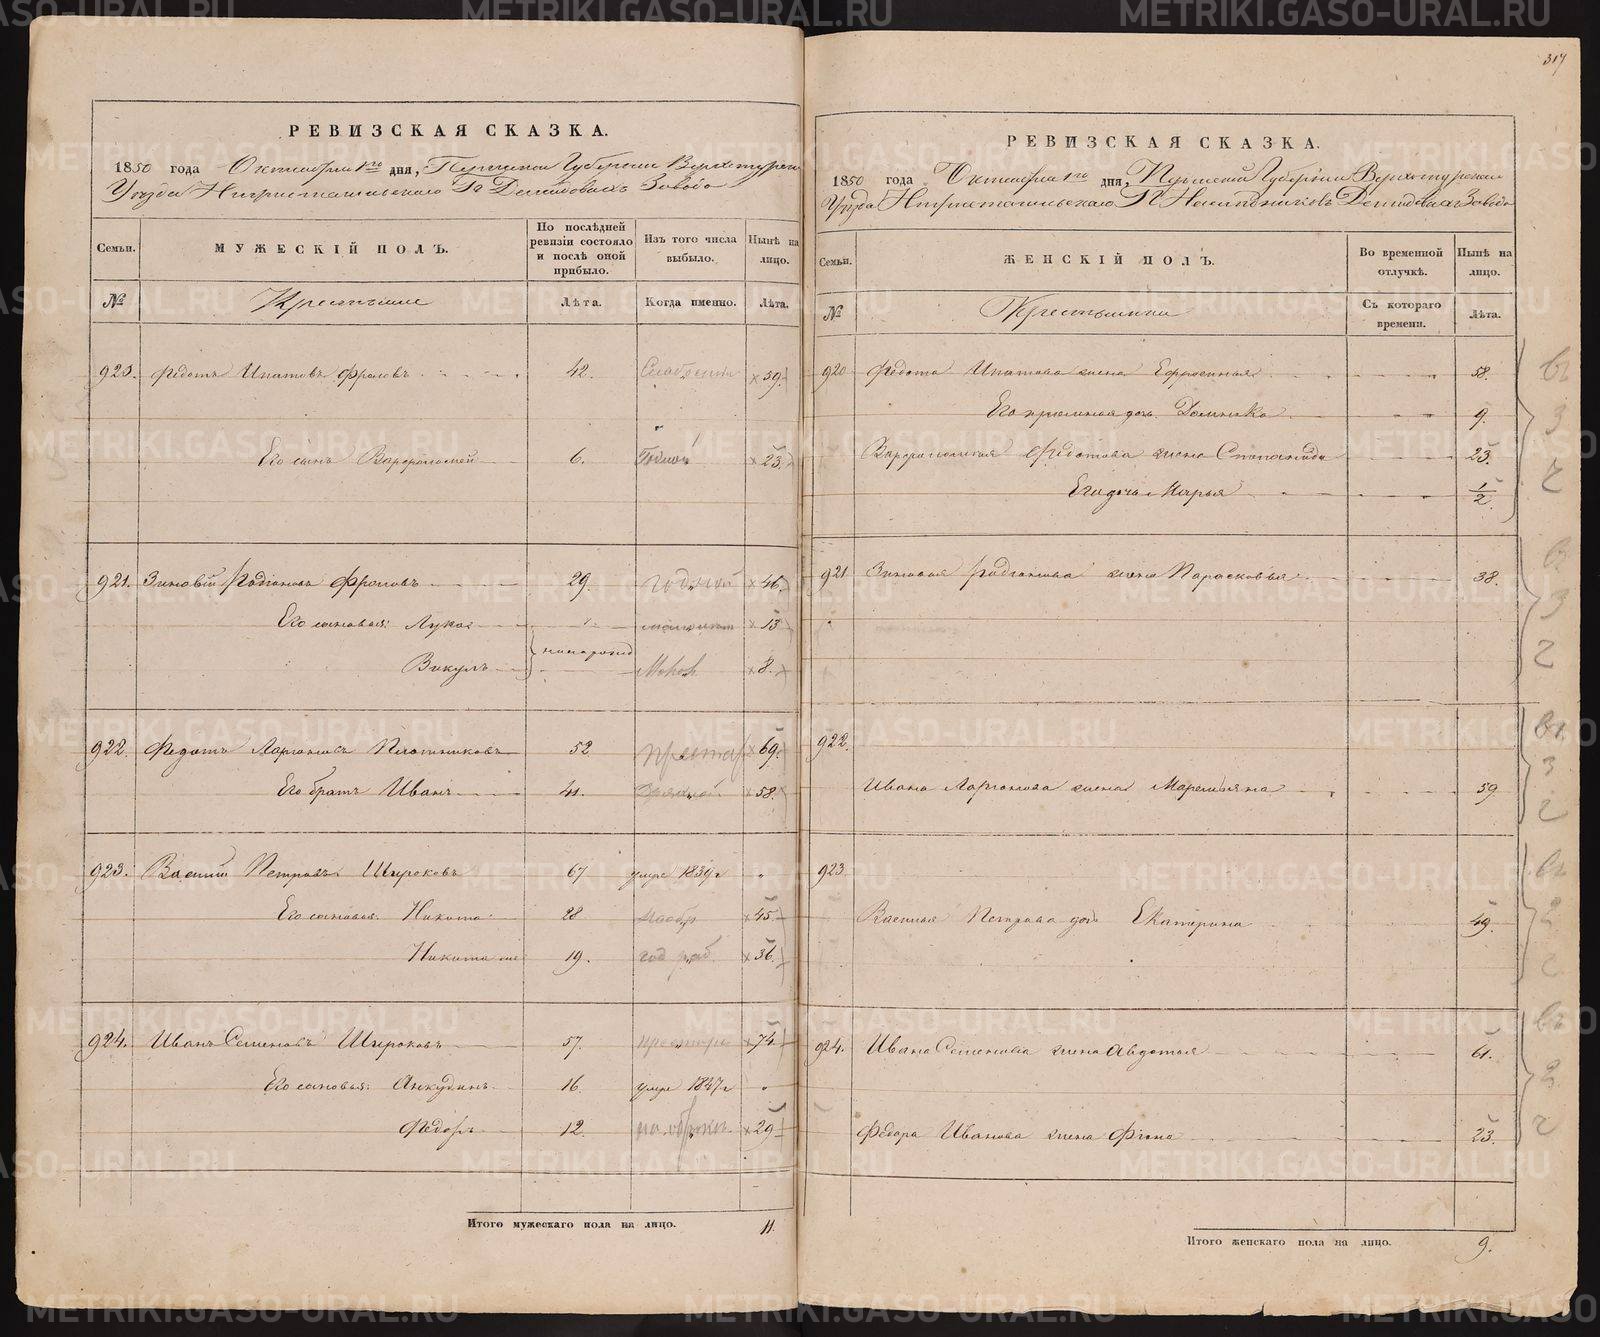 317
РЕВИЗСКАЯ СКАЗКА.
1850 года Октября 1го дня, Пермской Губернии Верхотурскаго
Уезда Нижнетагильскаго Гг Демидовыхъ Завода
Семьи. МУЖЕСКІЙ ПОЛЪ. По последней ревизіи состояло и послѣ оной прибыло. Изъ того числа выбыло. Нынѣ на лицо.
№ Крестьяне Лѣта. Когда именно. Лѣта.
920. Федотъ Ипатовъ Фроловъ 42. 59.
Его сынъ Варфоломей 6. Годной 23.
921. Зиновій Родіоновъ Фроловъ 29. годной 46.
Его сыновья: Лука 13
новорожд
Викулъ 8.
922. Федотъ Ларіоновъ Плотниковъ 52 престар 69.
Его братъ Иванъ 41. 58.
923. Василій Петровъ Широковъ 67 умре 1839 г "
Его сыновья: Никита 28 45.
Никита 19. год раб. 36.
924. Иванъ Семеновъ Широковъ 57. престаре 74
Его сыновья: Анкудинъ 16. умре 1847 г "
Федоръ 12. 29
Итого мужескаго пола на лицо. 11.
РЕВИЗСКАЯ СКАЗКА.
1850 года Октября 1го дня, Пермской Губерніи Верхотурскаго
Уезда Нижнетагильскаго Гг Наследниковъ Демидовыхъ Завода
Семьи. ЖЕНСКІЙ ПОЛЪ. Во временной отлучкѣ. Нынѣ на лицо.
№ Крестьянки Съ котораго времени. Лѣта.
920 Федота Ипатова жена Ефросинья 58.
Его пріемная дочь Домника 9.
Варфоломея Федотова жена Степанида 23.
Его дочь Марья 1/2
921 Зиновья Родіонова жена Парасковья 38.
922.
Ивана Ларіонова жена Маремьяна 59
923
Василья Петрова дочь Екатерина 49.
924. Ивана Семенова жена Авдотья 61.
Федора Иванова жена Фіона 23.
Итого женскаго пола на лицо. 9.
METRIKI.GASO-URAL.RU